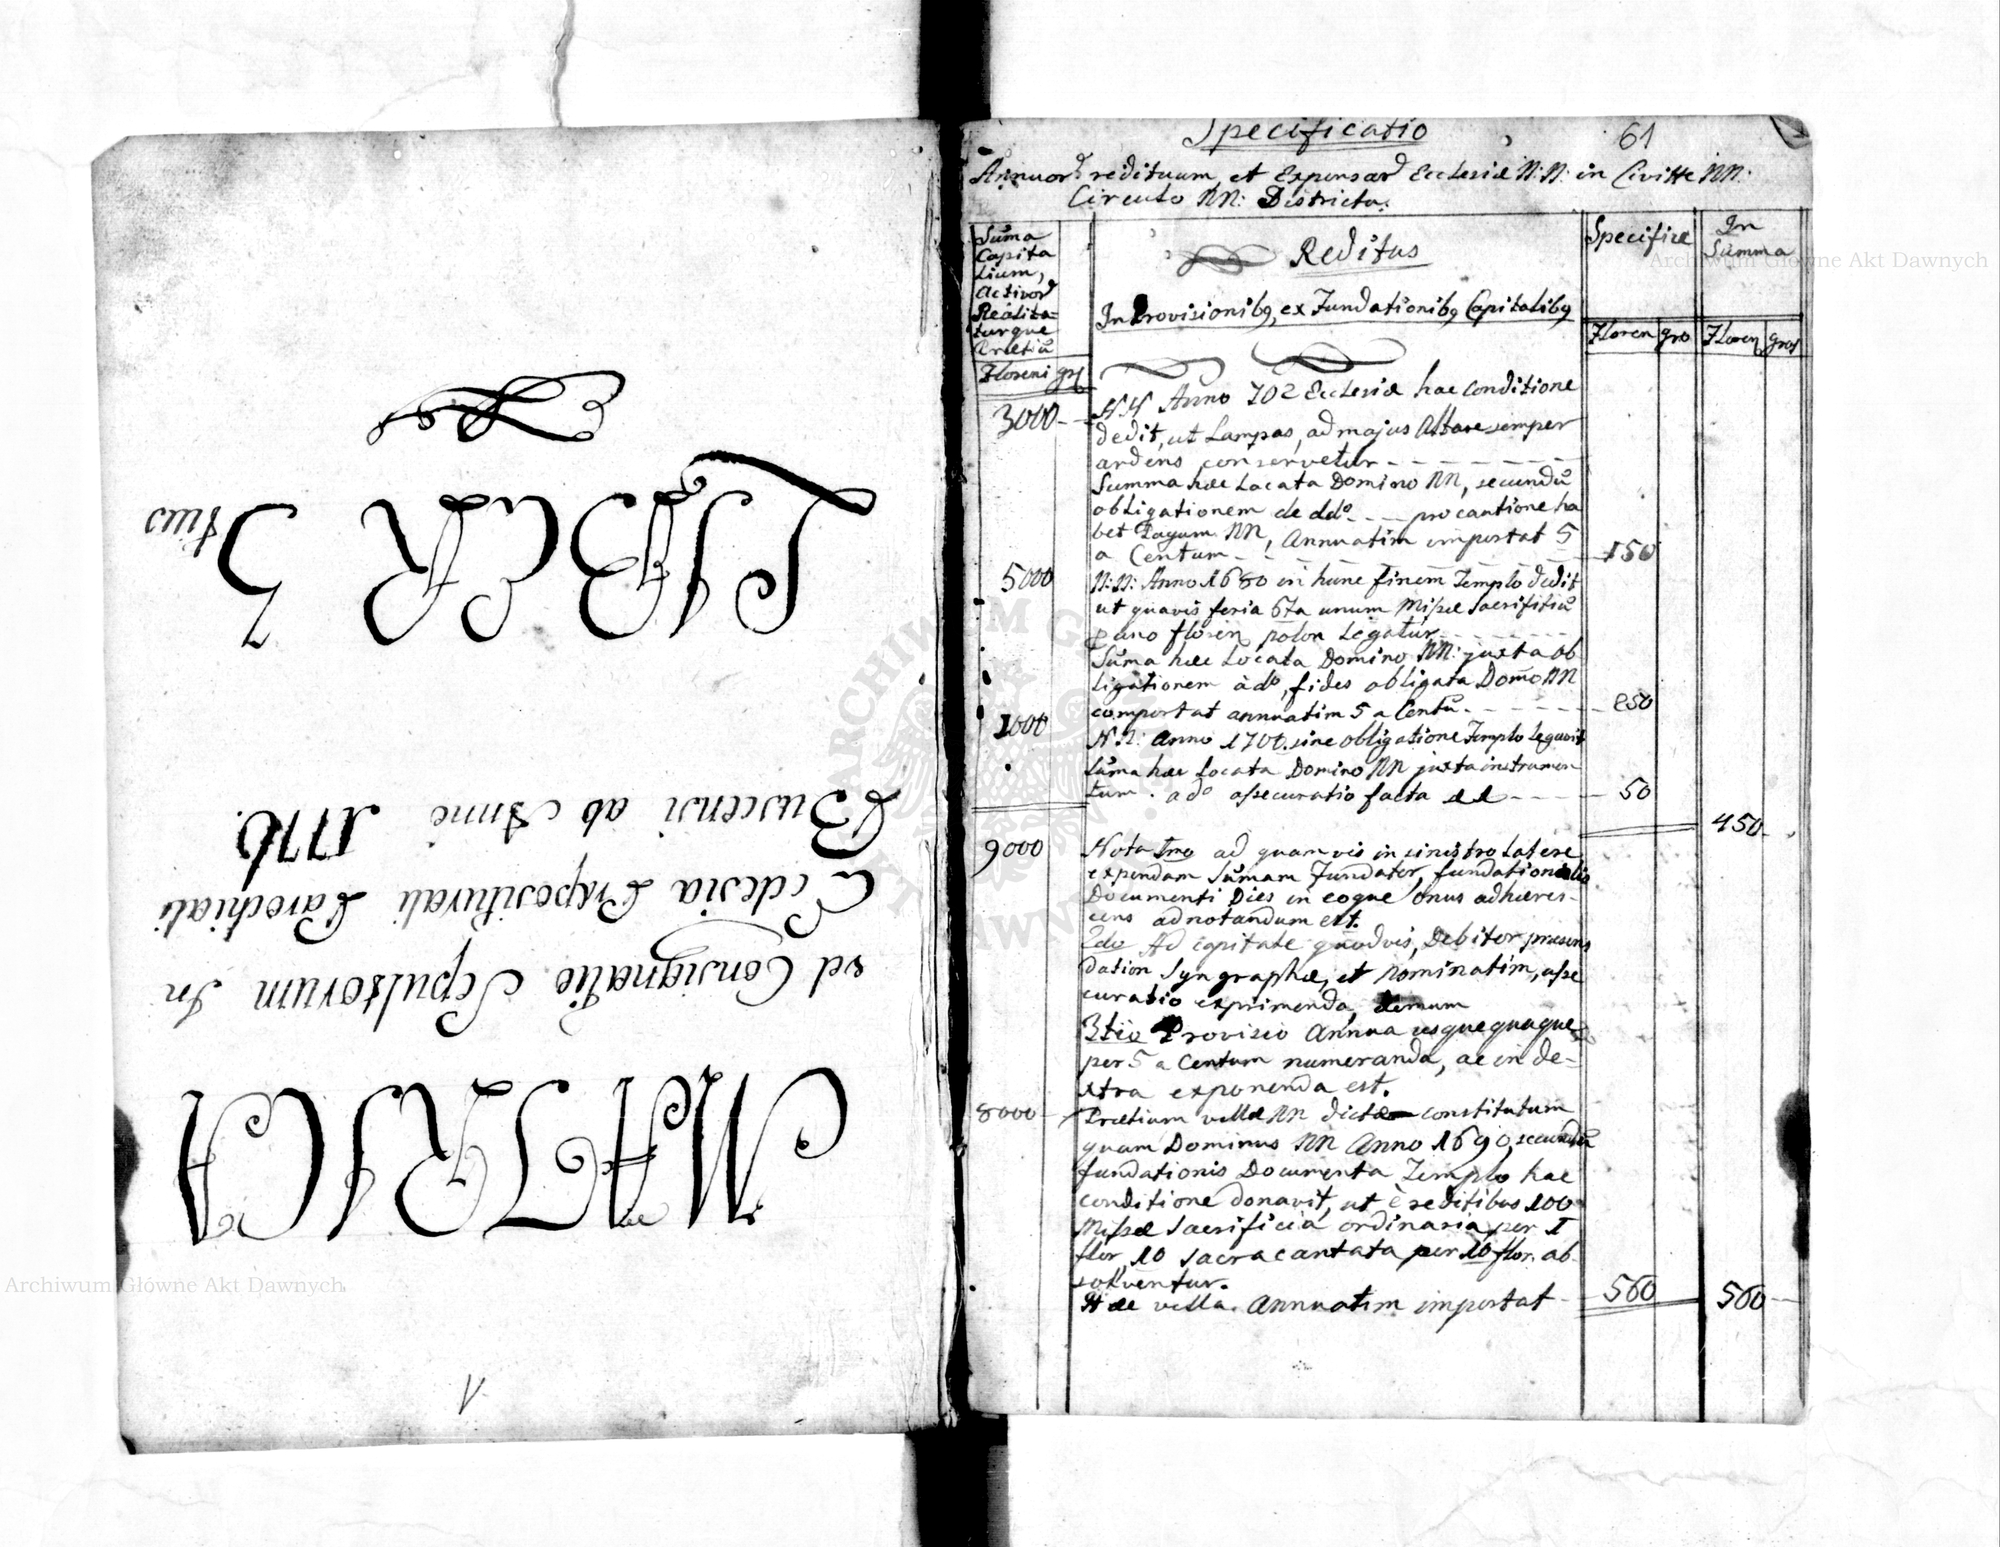 MATRICA
vel Consignatio Sepultorum In
Ecclesia Præpositurali Parochiali
Buscensi ab Anno 1776.
LIBER 3
tius
V
Specificatio
61
Annuorū redituum, et Expensarū Ecclesiæ N:N: in Civitte NN:
Circulo NN: Districtu.
Sum̄a
Capita
lium,
activorū
Realita=
turque
Prætiū
Floreni grs
Reditus
In Provisionibg, ex Fundationibg Capitalibg
Specificæ
In
Summa
Floren gro
Floren gros
3000 - - NN Anno 702 Ecclesiæ hac conditione
dedit, ut Lampas, ad majus Altare semper
ardens conservetur - - - - - -
Summa hæc Locata Domino NN, secundū
obligationem de ddo - - - pro cautione ha
bet Pagum NN, Annuatim importat 5
a Centum - - - 150
5000 N:N: Anno 1680 in hunc finem Templo dedit
ut quavis feria 6ta unum Missæ Sacrifitiū
p uno floren polon Legatur - - - -
Sum̄a hæc Locata Domino NN: juxta ob
ligationem àdo, fides obligata Domo NN
comportat annuatim 5 a Centū - - - - 250
1000 N.N: Anno 1700 sine obligatione Templo Legavit
Sum̄a hæc Locata Domino NN juxta instrumen
tum. ado assecuratio facta - - - 50
450
9000 Nota Imo ad quam vis in sinistro Latere
expendam Sum̄am Fundator, fundationalis
Documenti Dies in eoque onus adhæres-
cens adnotandum est.
2do Ad capitale quodvis, Debitor præsens
dation Syngraphæ, et nominatim, asse
curatio exprimenda, demum
3tio Provisio Annua usquequaque
per 5 a Centum numeranda, ac in de=
xtra exponenda est.
8000 - Prætium villæ NN dictæ constitutum
quam Dominus NN Anno 1690, secundū
fundationis Documenta Templo hac
conditione donavit, ut è reditibus 100
Missæ Sacrificia ordinaria per I
flor, 10 Sacra cantata per 10 flor. ab
solventur.
Hæc villa. Annuatim importat - 560 560